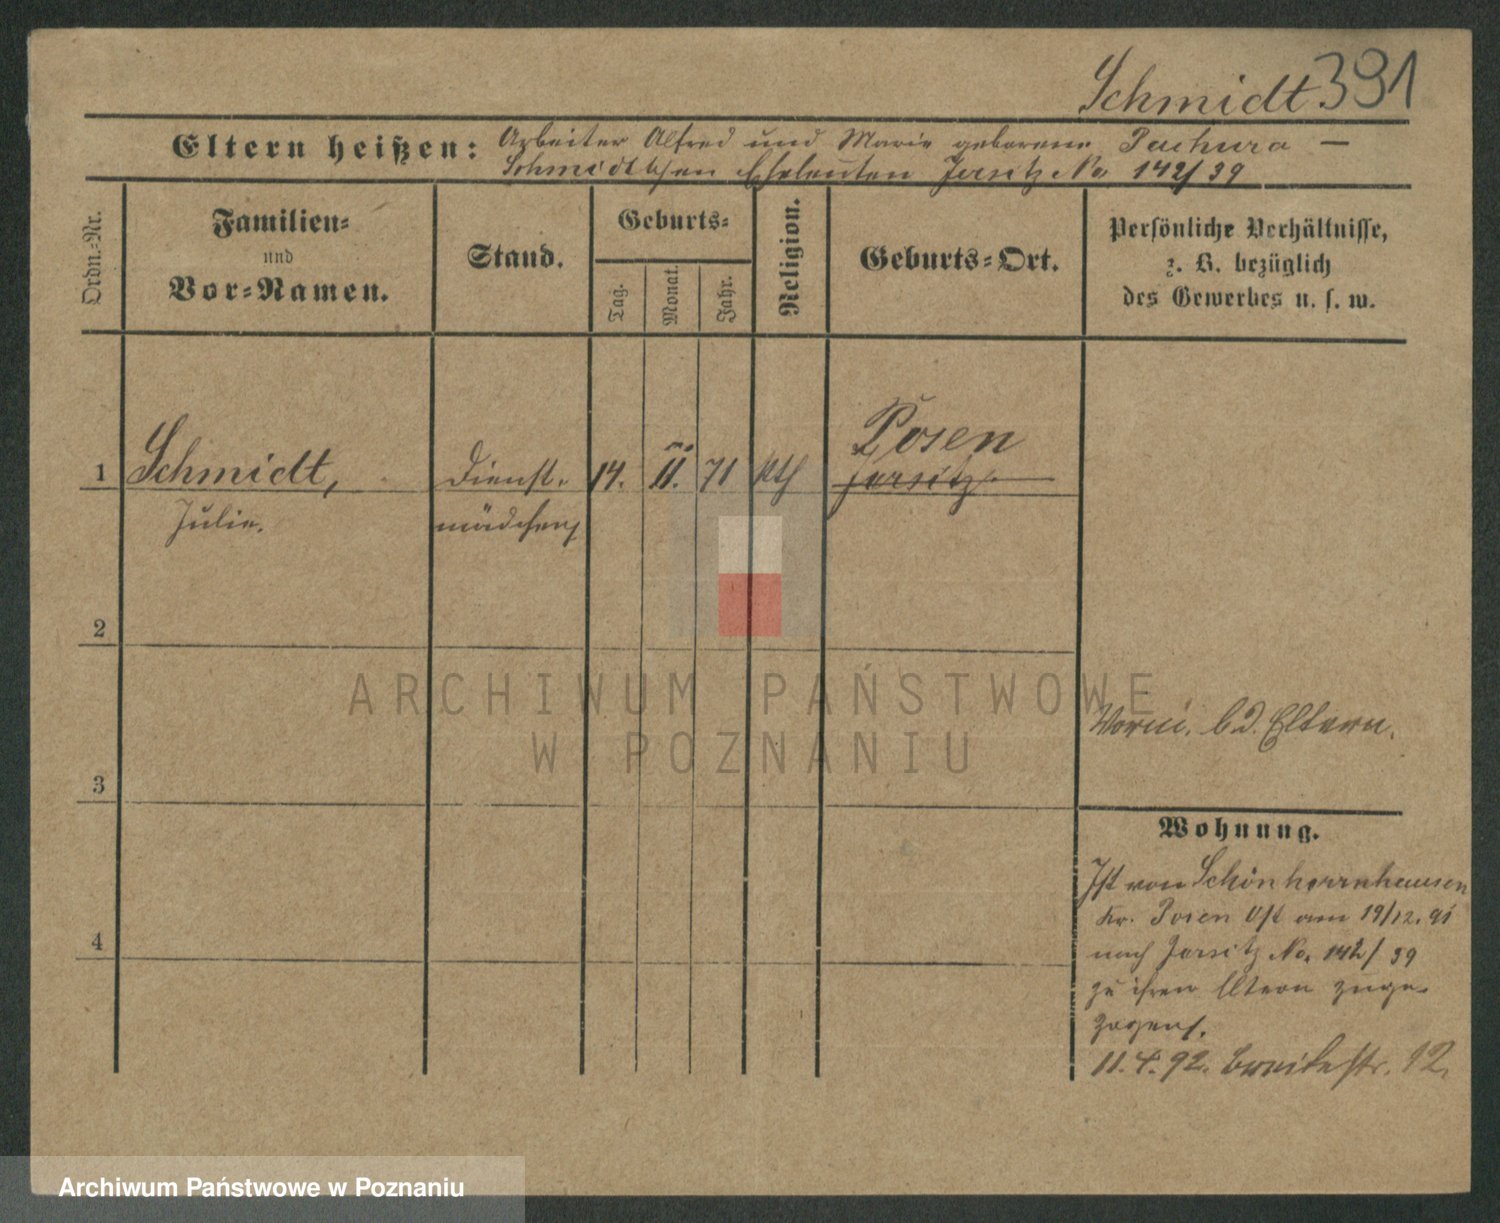 Schmidt 391
Eltern heißen: Arbeiter Alfred und Marie geborene Pachura —
Schmidt'schen Eheleuten Jersitz No 142/39
Ordn.-Nr.
Familien-
und
Vor-Namen.
Stand.
Geburts-
Tag.
Monat.
Jahr.
Religion.
Geburts-Ort.
Persönliche Verhältnisse,
z. B. bezüglich
des Gewerbes u. s. w.
Posen
1 Schmidt, Dienst- 14. II. 71 kth Jersitz
Julie. mädchen
2
ARCHIWUM PAŃSTWOWE
W POZNANIU
Eltern.
3
Wohnung.
Ist von Schönherrnhausen
Kr. Posen Ost am 19/12. 91
nach Jersitz No. 142/39
zu ihren Eltern zuge-
zogen.
11. 4. 92. Breitestr. 12.
4
Archiwum Państwowe w Poznaniu